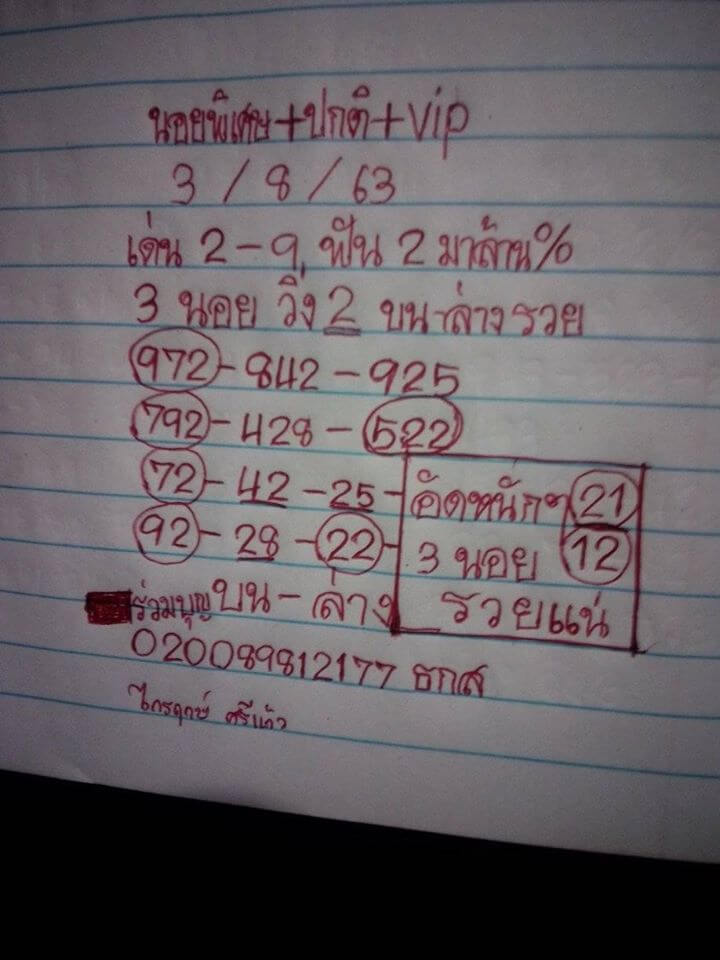 นอยพิเศษ+ปกติ+vip
3 / 8 / 63
เด่น 2-9, ฟัน 2 มาล้าน%
3 นอย วิ่ง 2 บน-ล่างรวย
972-842-925
792-428-522
72-42-25- อัดหนักๆ 21
92-28-22- 3 นอย 12
ร่วมบุญ บน-ล่าง รวยแน่
020089812177 ธกส
ไกรฤกษ์ ศรีแก้ว